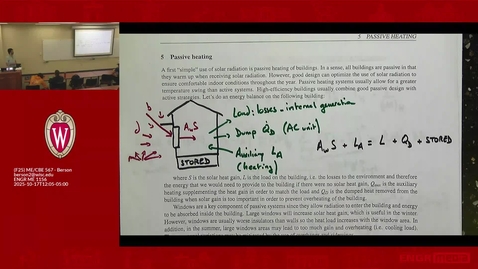 5 PASSIVE HEATING
5 Passive heating
A first "simple" use of solar radiation is passive heating of buildings. In a sense, all buildings are passive in that
they warm up when receiving solar radiation. However, good design can optimize the use of solar radiation to
ensure comfortable indoor conditions throughout the year. Passive heating systems usually allow for a greater
temperature swing than active systems. High-efficiency buildings usually combine good passive design with
active strategies. Let's do an energy balance on the following building:
Load: losses - internal generation
b
d
AwS
Dump QD (AC unit)
Auxiliary LA
(heating)
STORED
AwS + LA = L + QD + STORED
where S is the solar heat gain, L is the load on the building, i.e. the losses to the environment and therefore
the energy that we would need to provide to the building if there were no solar heat gain, is the auxiliary
heating supplementing the heat gain in order to match the load and is the dumped heat removed from the
building when solar gain is too important in order to prevent overheating of the building.
Windows are a key component of passive systems since they allow radiation to enter the building and energy to
be absorbed inside the building. Large windows will increase solar heat gain, which is useful in the winter
However, windows are usually worse insulators than walls so the heat load increases with the window area. In
addition, in the summer, large windows areas may lead to too much gain and overheating (i.e. cooling load).
W
(F25) ME/CBE 567 - Berson
berson2@wisc.edu
ENGR ME 1156
2025-10-17T12:05-05:00